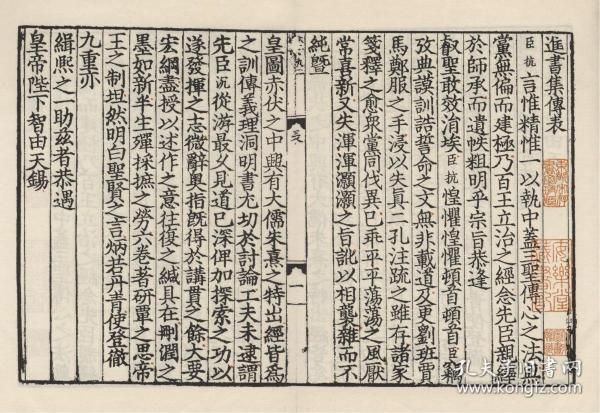 進書集傳表
臣抗言惟精惟一以執中蓋三聖傳心之法無
黨無偏而建極乃百王立治之經念先臣親繹
於師承而遺帙粗明乎宗旨恭逢
叡聖敢效涓埃臣抗惶懼惶懼頓首頓首臣竊
攷典謨訓誥誓命之文無非載道及更劉班賈
馬鄭服之手浸以失真二孔注疏之雖存諸家
箋釋之愈衆黨同伐異已乖平平蕩蕩之風厭
常喜新又失渾渾灝灝之旨訛以相襲雜而不
純暨
皇圖赤伏之中興有大儒朱熹之特出經皆爲
之訓傳義理洞明書尤切於討論工夫未逮謂
先臣沉從游最久見道已深俾加探索之功以
遂發揮之志微辭奧指既得於講貫之餘大要
宏綱盡授以述作之意往復之緘具在刪潤之
墨如新半生殫採摭之勞六卷著研覃之思帝
王之制坦然明白聖賢之言炳若丹青使登徹
九重亦
緝熙之一助茲者恭遇
皇帝陛下智由天錫
表
一
孔夫子旧书网